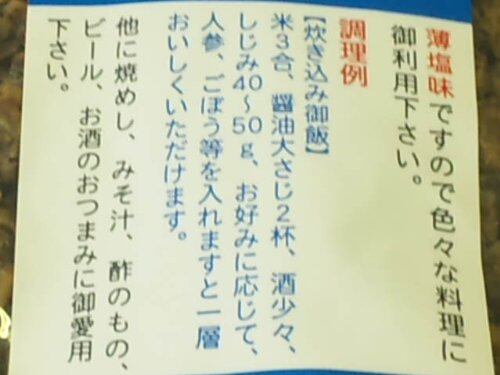 薄塩味ですので色々な料理に
御利用下さい。
調理例
【炊き込み御飯】
米3合、醤油大さじ2杯、酒少々、
しじみ40〜50g、お好みに応じて、
人参、ごぼう等を入れますと一層
おいしくいただけます。
他に焼めし、みそ汁、酢のもの、
ビール、お酒のおつまみに御愛用
下さい。